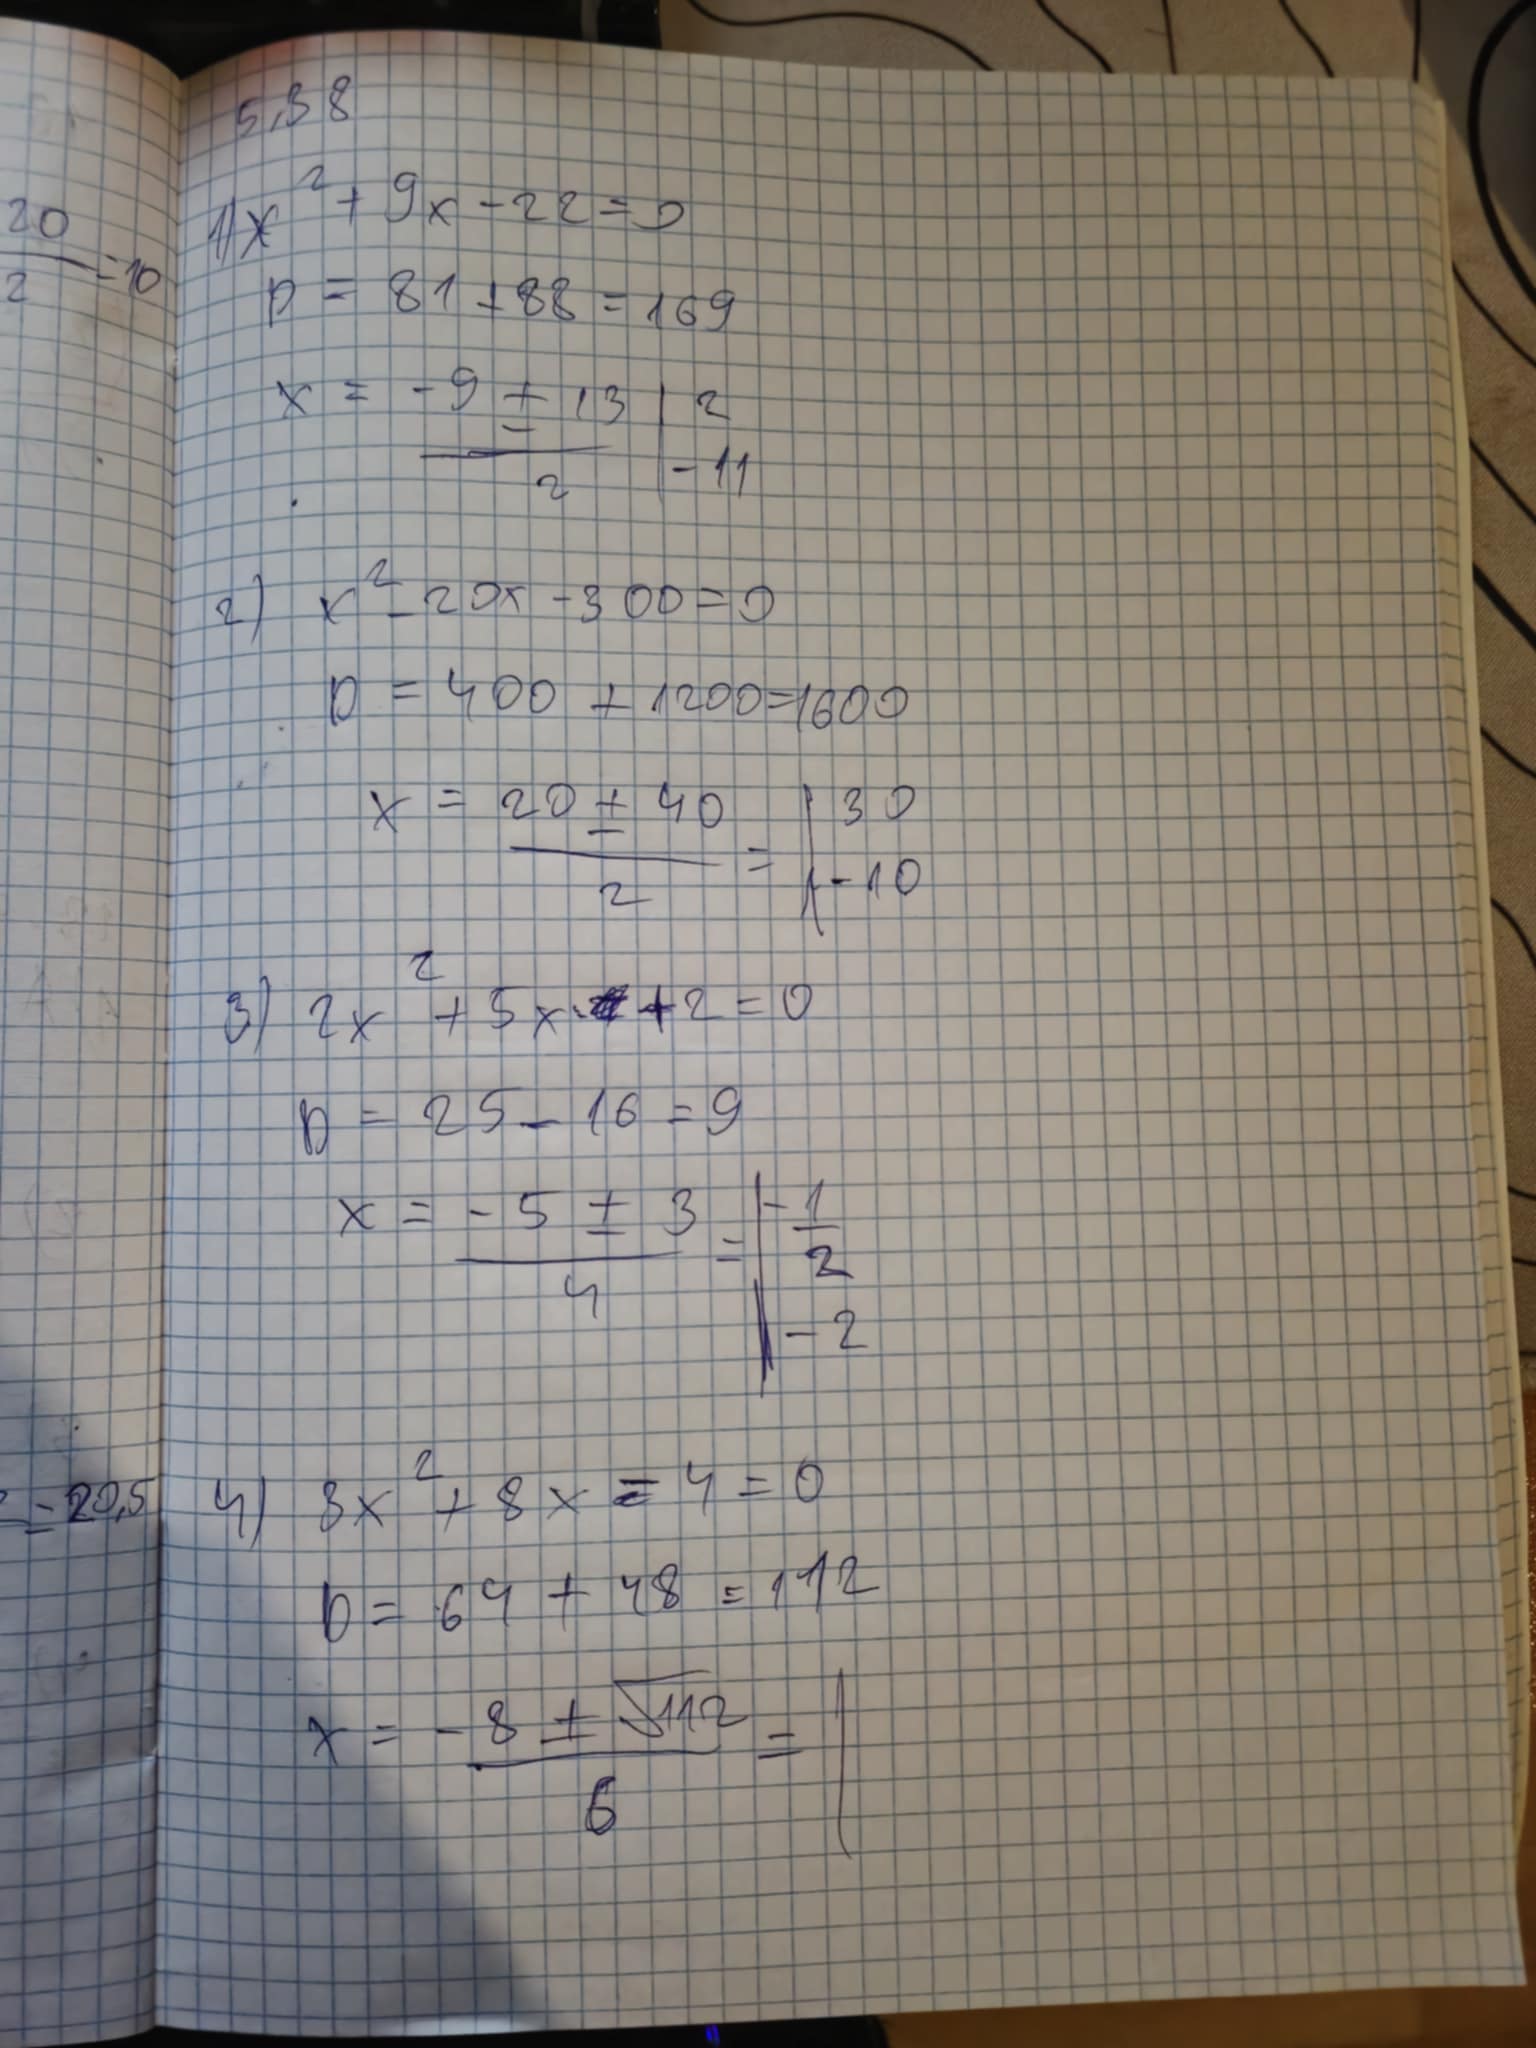 20
2
=10
2=20,5
5,38
1) x² + 9x - 22 = 0
D = 81 + 88 = 169
x = -9 ± 13 | 2
2 | -11
2) x² - 20x - 300 = 0
D = 400 + 1200 = 1600
x = 20 ± 40 = | 30
2 | -10
3) 2x² + 5x + 2 = 0
D = 25 - 16 = 9
x = -5 ± 3 = | - 1
4 2
| -2
4) 3x² + 8x - 4 = 0
D = 64 + 48 = 112
x = -8 ± √112 = |
6